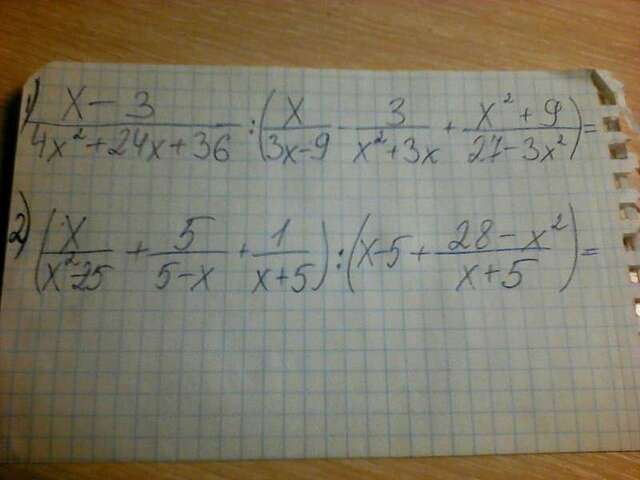 1) (x - 3)/(4x² + 24x + 36) : (x/(3x - 9) - 3/(x² + 3x) + (x² + 9)/(27 - 3x²)) =
2) (x/(x² - 25) + 5/(5 - x) + 1/(x + 5)) : (x - 5 + (28 - x²)/(x + 5)) =